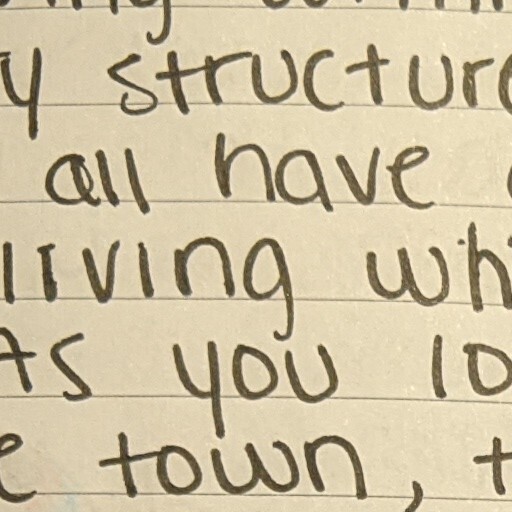 y structure
all have
living whi
As you lo
e town, t